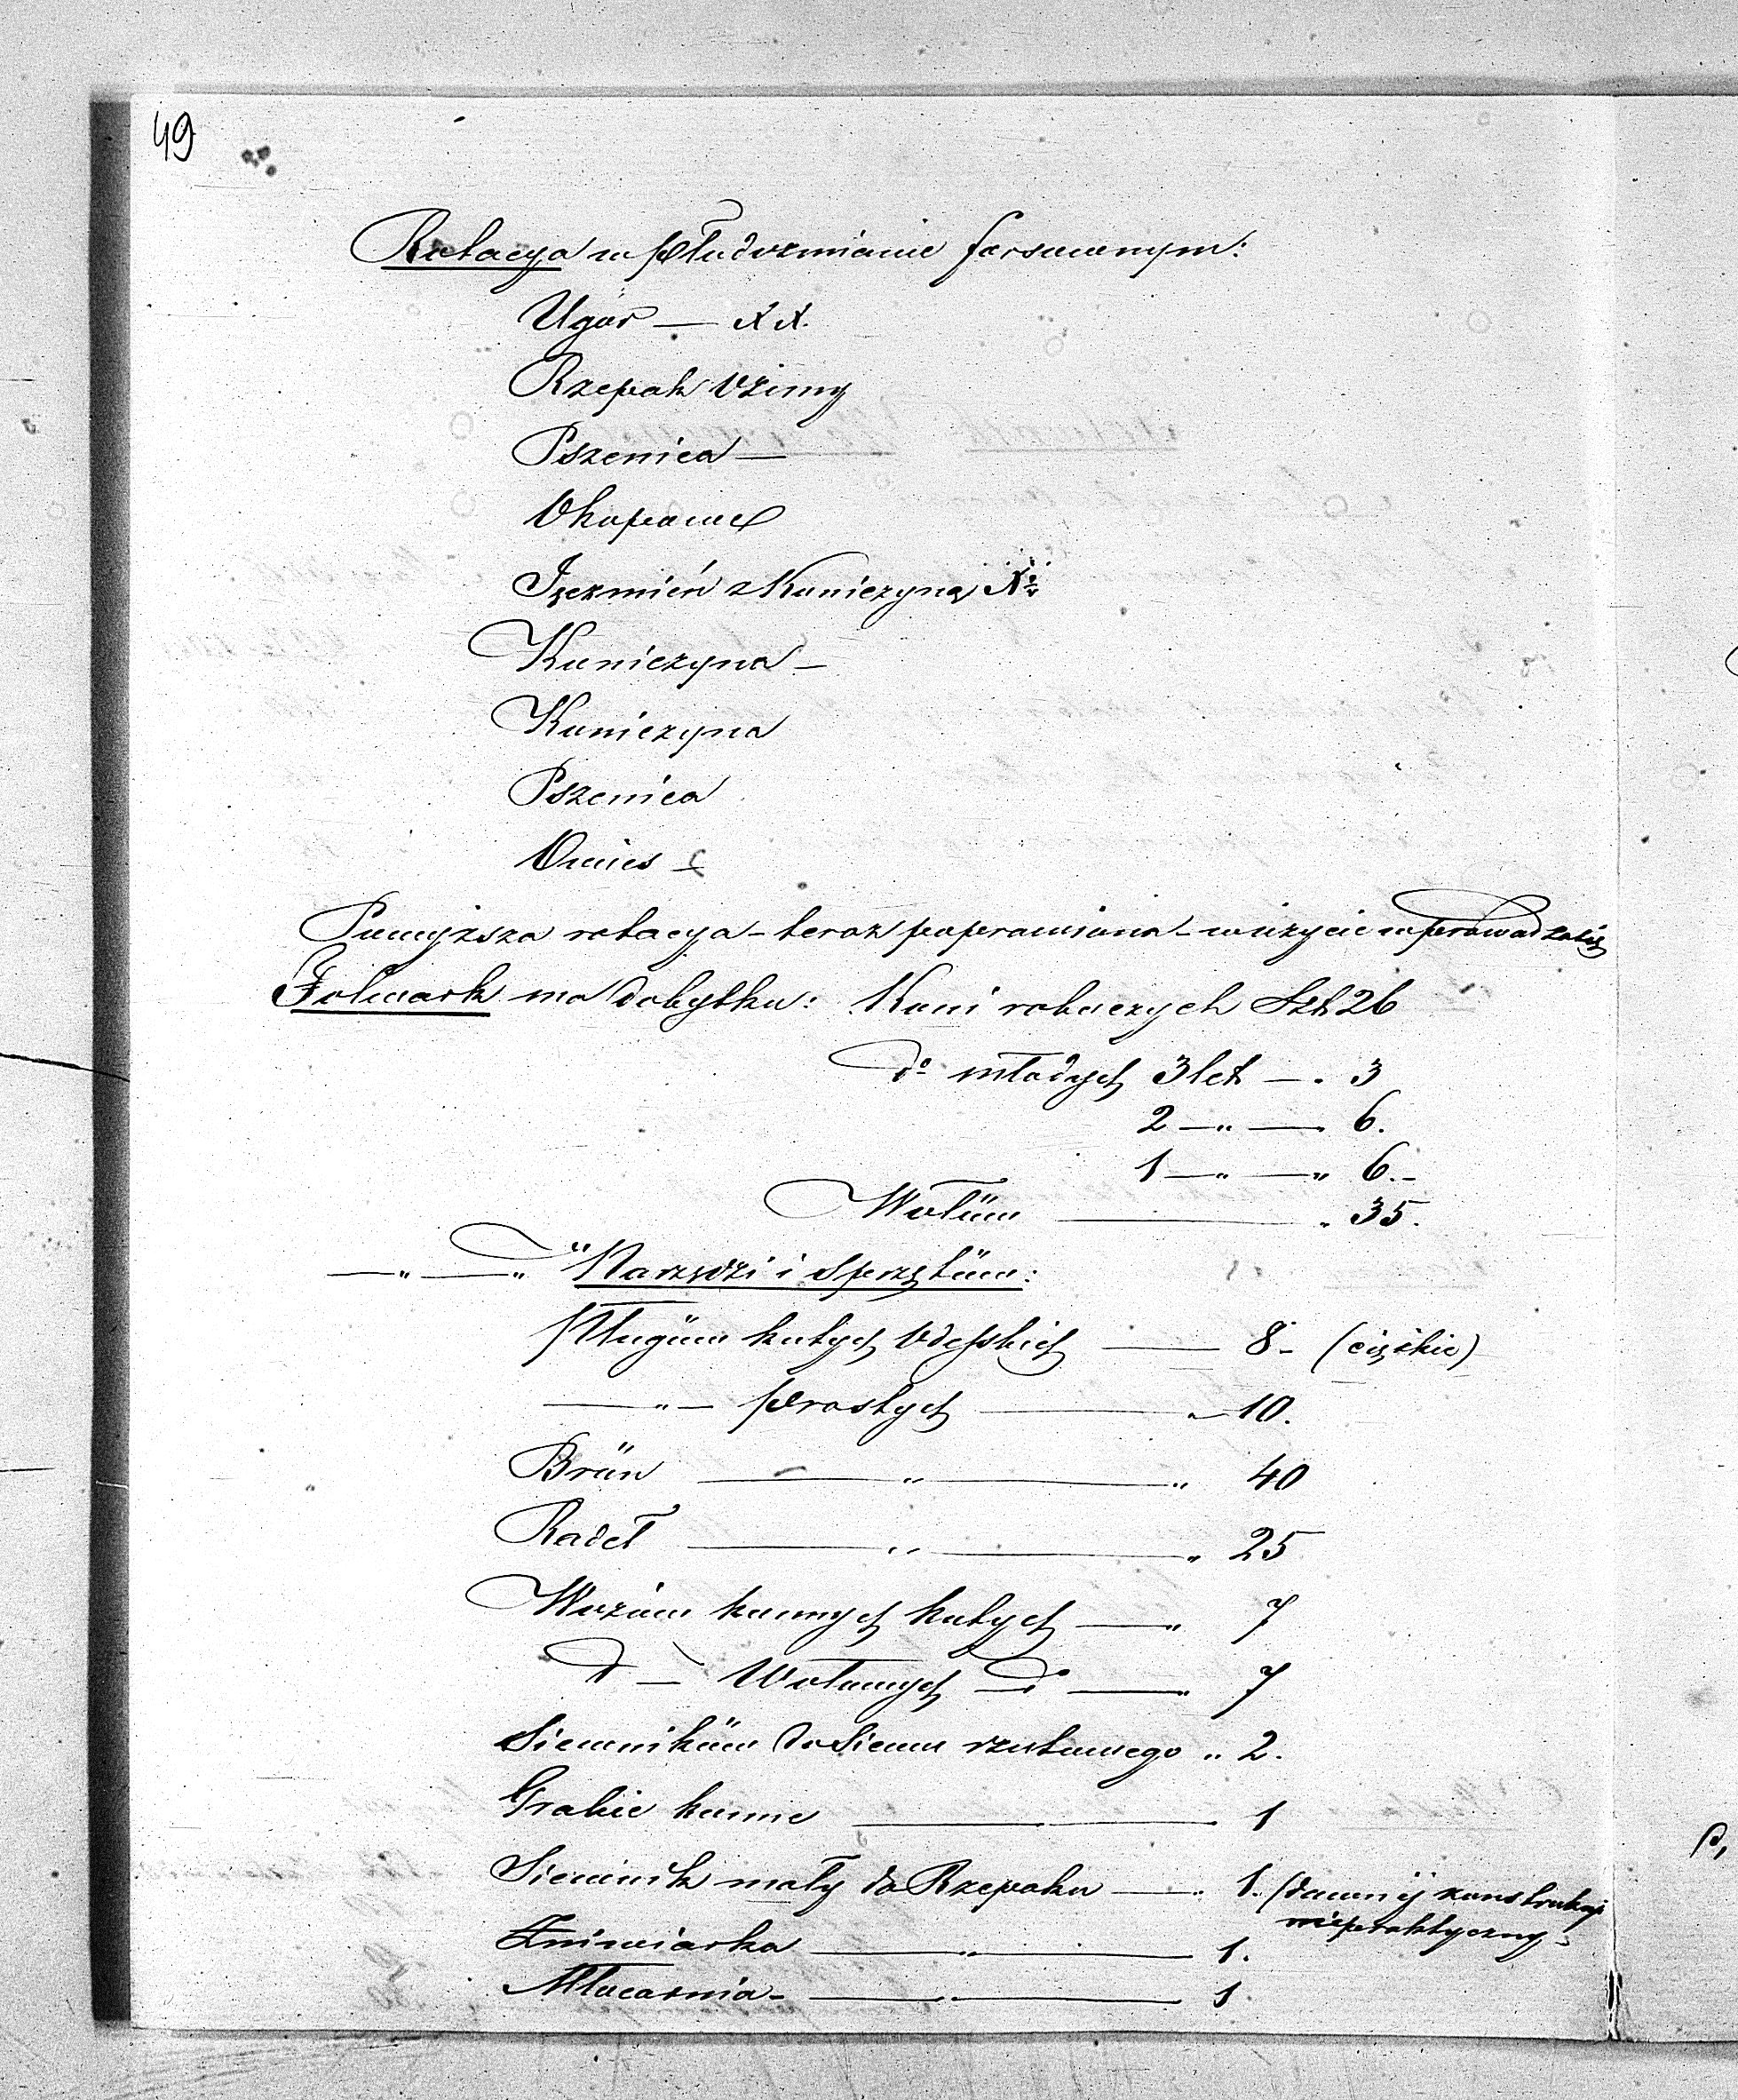 49
Rotacya w płodozmianie forsownym:
Ugór — XX.
Rzepak Ozimy
Pszenica —
Okopowe
Jęczmień z Koniczyną
Koniczyna —
Koniczyna
Pszenica
Owies —
Powyższa rotacya - teraz poprawiona - w użycie wprowadza się
Folwark ma dobytku: Koni roboczych Szt 26
do młodych 3 let — . 3
2 — " — 6.
1 — " — " 6. -
Wołów — " 35.
— " — " Narzędzi i Sprzętów:
Pługów kutych Odesskich — 8 - (ciężkie)
— " — prostych — " 10.
Brón — " — " 40
Radeł — " — " 25
Wozów konnych kutych — " 7
do — Wołowych do — " 7
Siewników do Siewu rzutowego " 2.
Grabie konne — 1
Siewnik mały do Rzepaku — " 1. (dawnéj konstrukcji
niepraktyczny -
Żniwiarka — " — 1.
Młocarnia - — " — 1